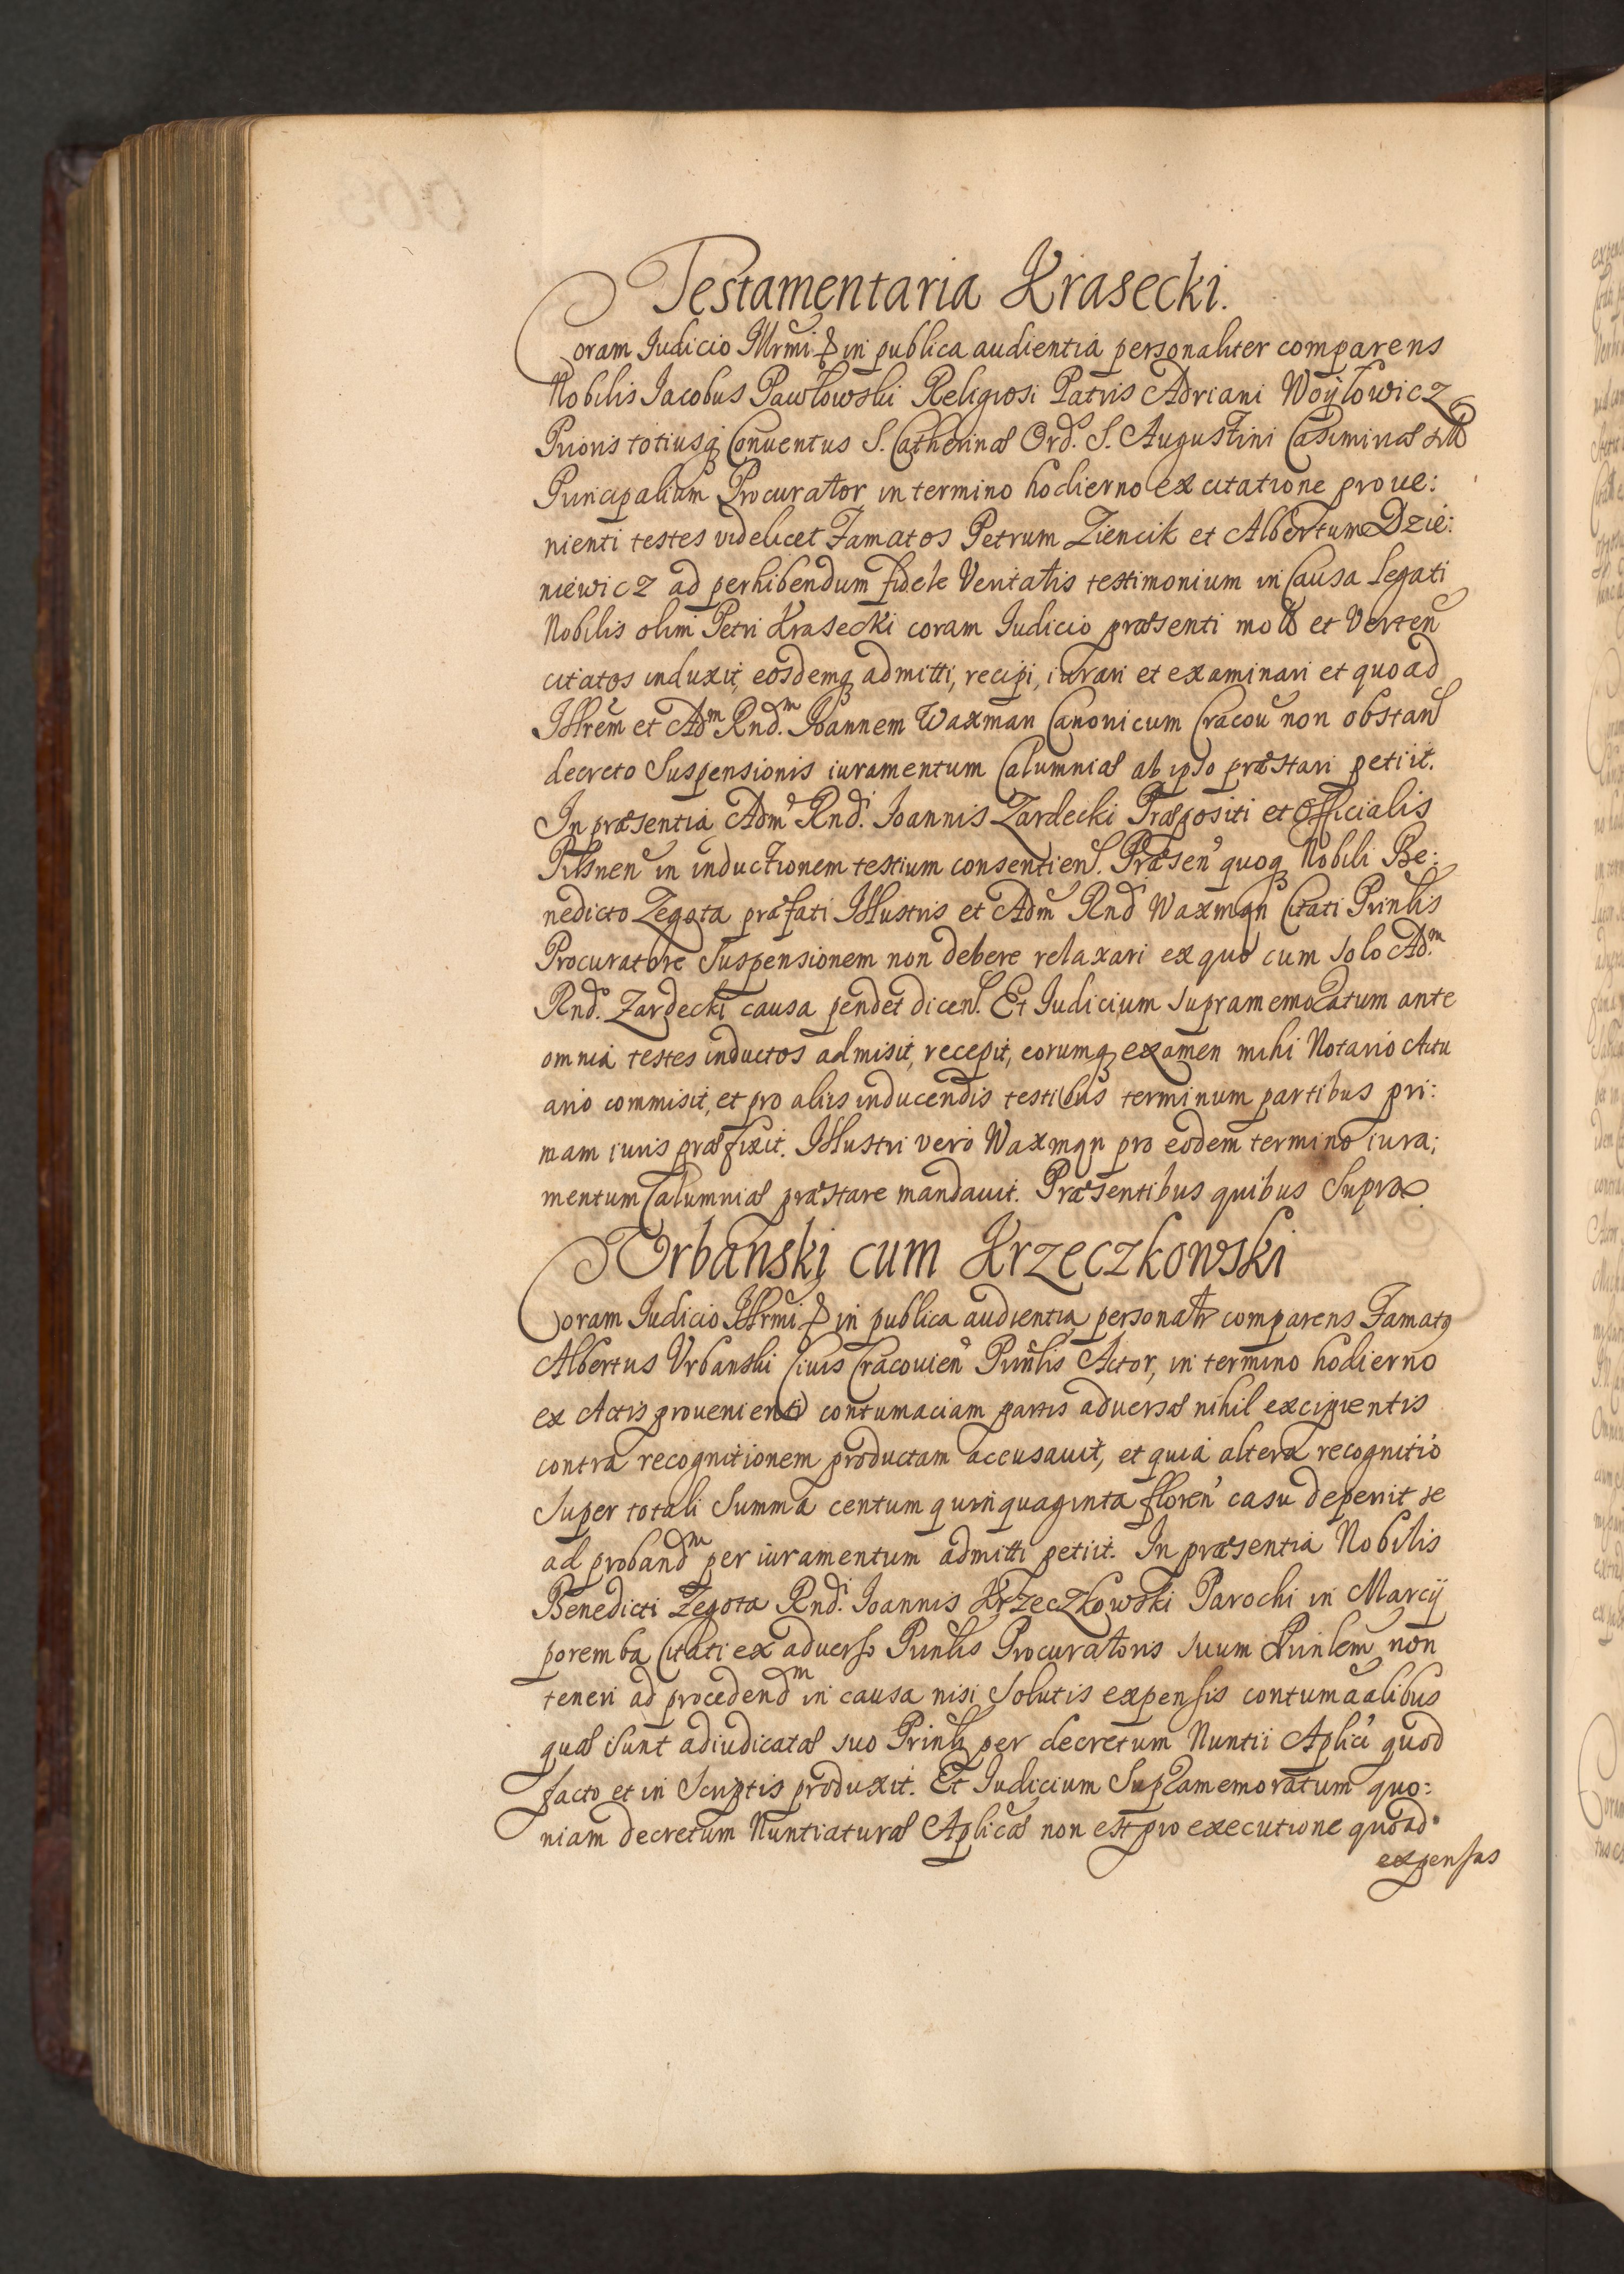 Testamentaria Krasecki.
Coram Iudicio Illrmi & in publica audientia personaliter comparens
Nobilis Iacobus Pawłowski Religiosi Patris Adriani Woyłowicz
Prioris totiusq Conuentus S. Catherinæ Ord. S. Augustini Casimiriæ
Principalium Procurator in termino hodierno ex citatione proue:
nienti testes videlicet Famatos Petrum Ziencik et Albertum Dzie:
niewicz ad perhibendum fidele Veritatis testimonium in Causa Legati
Nobilis olim Petri Krasecki coram Iudicio præsenti et Verten
citatos induxit, eosdemq admitti, recipi, iurari et examinari et quo ad
Illrem et Adm Rnd.m Ioannem Waxman Canonicum Cracou non obstan
decreto Suspensionis iuramentum Calumniæ ab ipso præstari petiit.
In præsentia Adm Rnd. Ioannis Zardecki Præpositi et Officialis
Pilsnen in inductionem testium consentien. Præsen quoq Nobili Be:
nedicto Zegota præfati Illustris et Adm Rnd Waxman Citati Prinlis
Procuratore Suspensionem non debere relaxari ex quo cum solo Ad.m
Rnd. Zardecki causa pendet dicen. Et Iudicium supramemoratum ante
omnia testes inductos admisit, recepit, eorumq examen mihi Notario Actu
ario commisit, et pro aliis inducendis testibus terminum partibus pri:
mam iuris præfixit. Illustri vero Waxman pro eodem termino iura:
mentum Calumniæ præstare mandauit. Præsentibus quibus Supra
Vrbanski cum Krzeczkowski
Coram Iudicio Illrmi & in publica audientia personalr comparens Famatq
Albertus Vrbanski Ciuis Cracouien Prinlis Actor, in termino hodierno
ex Actis prouenienti contumaciam partis aduersæ nihil excipientis
contra recognitionem productam accusauit, et quia altera recognitio
super totali Summa centum quinquaginta floren casu deperiit se
ad proband.m per iuramentum admitti petiit. In præsentia Nobilis
Benedicti Zegota Rnd. Ioannis Krzeczkowski Parochi in Marcy
poremba Citati ex aduerso Prinlis Procuratoris suum Prinlem non
teneri ad procedend.m in causa nisi Solutis expensis contumacialibus
quæ sunt adiudicatæ suo Prinli per decretum Nuntii Aplici quod
facto et in Scriptis produxit. Et Iudicium Supramemoratum quo:
niam decretum Nuntiaturæ Aplicæ non est pro executione quoad
expensas